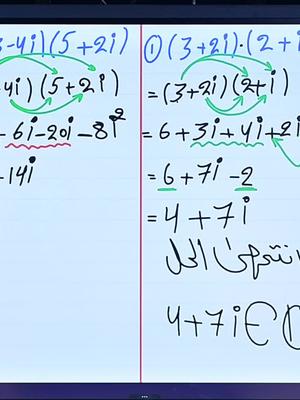 ① (3+2i)·(2+i
=(3+2i)(2+i)
=6+3i+4i+2i
=6+7i-2
=4+7i
انتهى الحل
4+7i∈
3-4i)(5+2i)
4i)(5+2i)
-6i-20i-8i²
-14i